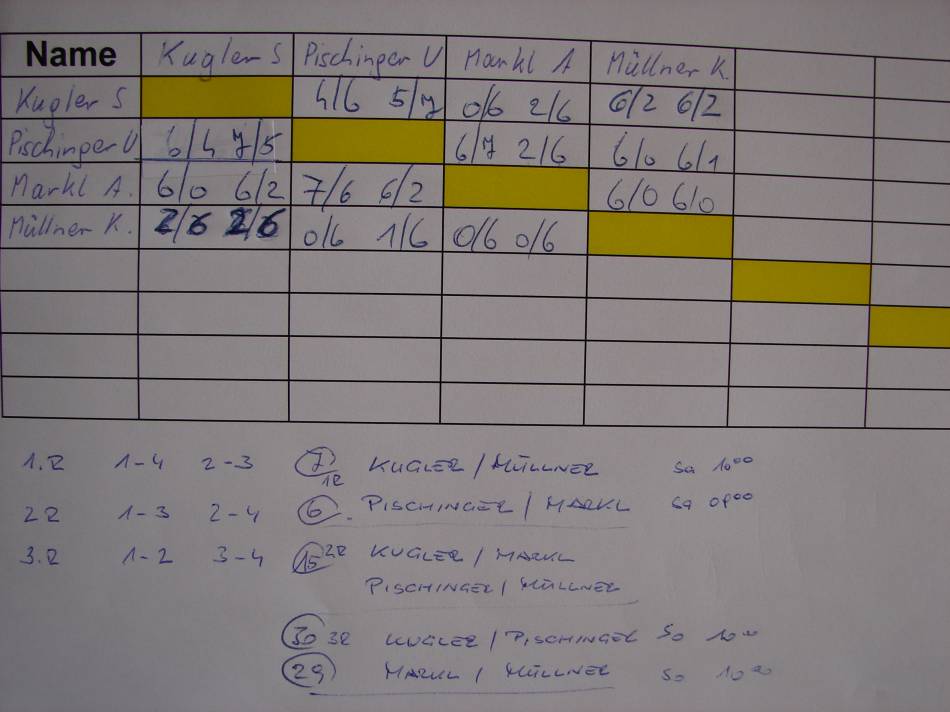 Name Kugler S Pischinger U Markl A Müllner K.
Kugler S 4/6 5/7 0/6 2/6 6/2 6/2
Pischinger U 6/4 7/5 6/7 2/6 6/0 6/1
Markl A. 6/0 6/2 7/6 6/2 6/0 6/0
Müllner K. 2/6 2/6 0/6 1/6 0/6 0/6
1.R 1-4 2-3 7 1R KUGLER / MÜLLNER Sa 10⁰⁰
2R 1-3 2-4 6. PISCHINGER / MARKL Sa 09⁰⁰
3.R 1-2 3-4 15 2R KUGLER / MARKL
PISCHINGER / MÜLLNER
30 3R KUGLER / PISCHINGER So 10⁰⁰
29 MARKL / MÜLLNER So 10⁰⁰